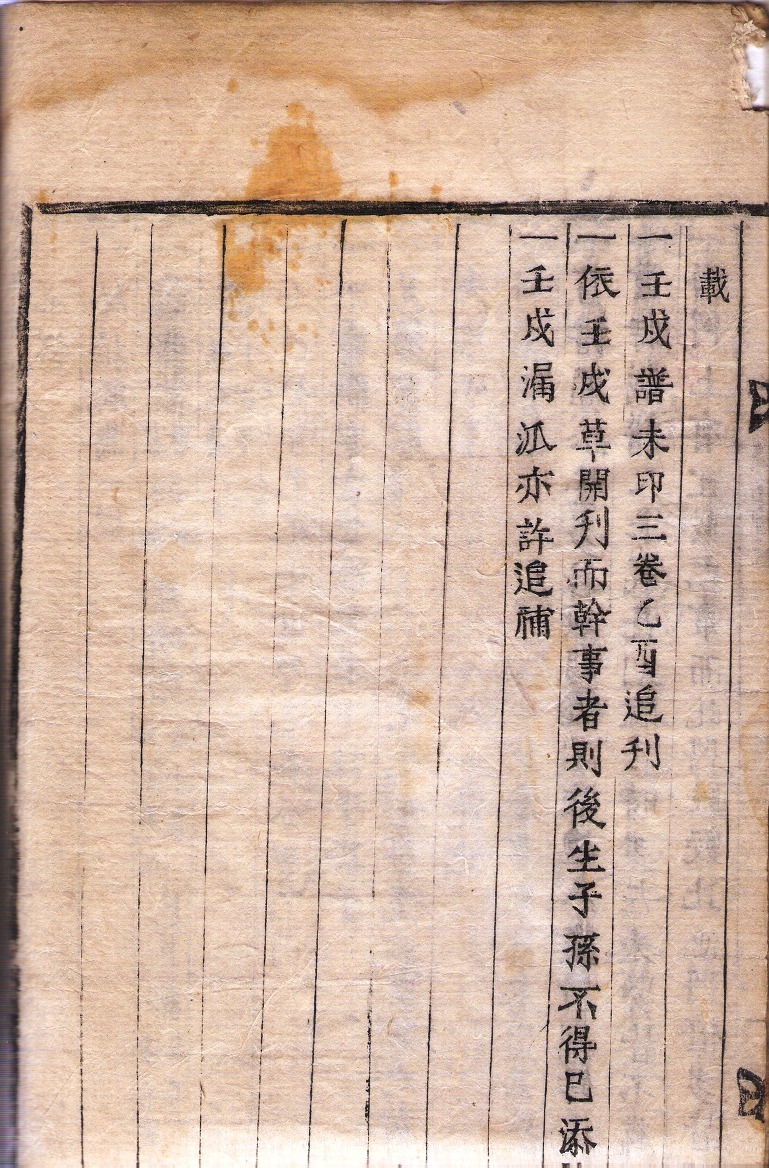 載
一壬戍譜未印三卷乙酉追刋
一依壬戍草開刋而幹事者則後生子孫不得已添
一壬戍漏派亦許追補